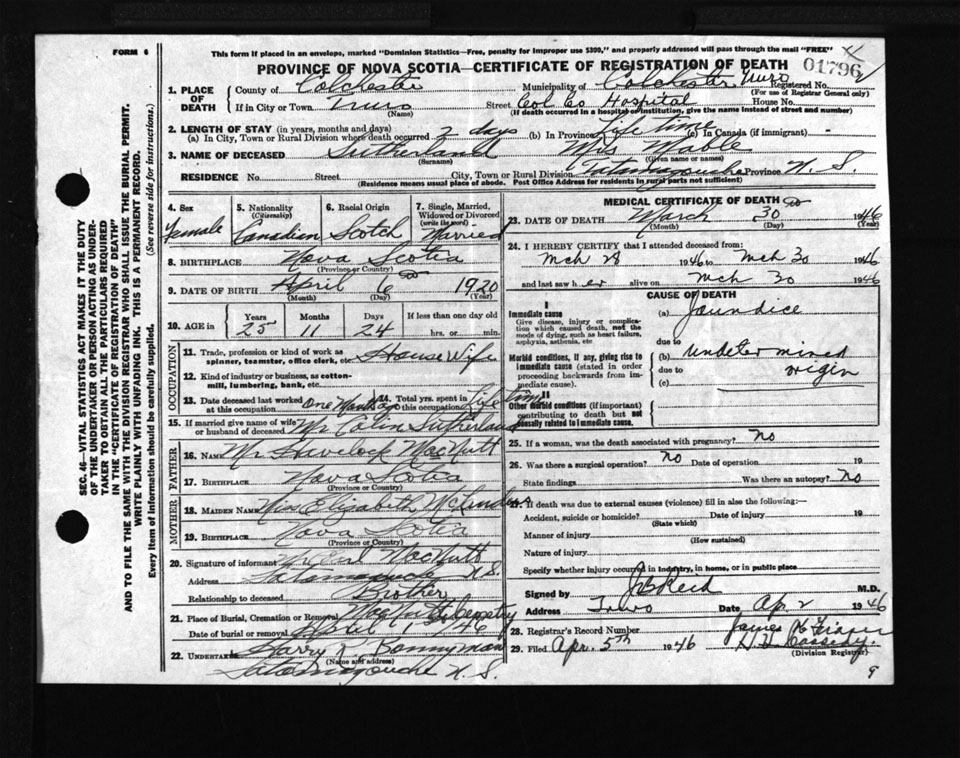 FORM 6
This form if placed in an envelope, marked "Dominion Statistics—Free, penalty for improper use $300," and properly addressed will pass through the mail "FREE"
PROVINCE OF NOVA SCOTIA—CERTIFICATE OF REGISTRATION OF DEATH
01796
1. PLACE OF DEATH
County of Colchester
Municipality of Colchester Truro Registered No.
(For use of Registrar General only)
If in City or Town Truro Street Col Co Hospital House No.
(Name) (If death occurred in a hospital or institution, give the name instead of street and number)
2. LENGTH OF STAY (in years, months and days)
(a) In City, Town or Rural Division where death occurred 2 days (b) In Province Life time (c) In Canada (if immigrant)
3. NAME OF DECEASED Sutherland Mrs Mable
(Surname) (Given name or names)
RESIDENCE No. Street City, Town or Rural Division Tatamagouche Province N. S.
(Residence means usual place of abode. Post Office Address for residents in rural parts not sufficient)
4. Sex Female
5. Nationality (Citizenship) Canadian
6. Racial Origin Scotch
7. Single, Married, Widowed or Divorced (write the word) Married
8. BIRTHPLACE Nova Scotia
(Province or Country)
9. DATE OF BIRTH April 6 1920
(Month) (Day) (Year)
10. AGE in Years Months Days If less than one day old
25 11 24 hrs. or min.
OCCUPATION
11. Trade, profession or kind of work as spinner, teamster, office clerk, etc. House Wife
12. Kind of industry or business, as cotton-mill, lumbering, bank, etc.
13. Date deceased last worked at this occupation One Month ago 14. Total yrs. spent in this occupation Life time
15. If married give name of wife or husband of deceased Mr Colin Sutherland
FATHER
16. Name Mr Havelock MacNutt
17. Birthplace Nova Scotia
(Province or Country)
MOTHER
18. MAIDEN NAME Miss Elizabeth
19. BIRTHPLACE Nova Scotia
(Province or Country)
20. Signature of informant MacNutt
Address Tatamagouche N.S.
Relationship to deceased Brother
21. Place of Burial, Cremation or Removal MacNutt Cemetry
Date of burial or removal April 1 /46
22. UNDERTAKER Harry Bonnyman
(Name and address)
Tatamagouche N. S.
MEDICAL CERTIFICATE OF DEATH
23. DATE OF DEATH March 30 1946
(Month) (Day) (Year)
24. I HEREBY CERTIFY that I attended deceased from:
Mch 28 1946 to Mch 30 1946
and last saw h er alive on Mch 30 1946
CAUSE OF DEATH
I
Immediate cause
Give disease, injury or complication which caused death, not the mode of dying, such as heart failure, asphyxia, asthenia, etc
(a) Jaundice
due to
Morbid conditions, if any, giving rise to immediate cause (stated in order proceeding backwards from immediate cause).
(b) Undetermined
due to origin
(c)
II
Other morbid conditions (if important) contributing to death but not causally related to immediate cause.
25. If a woman, was the death associated with pregnancy? No
26. Was there a surgical operation? No Date of operation 19
State findings Was there an autopsy? No
27. If death was due to external causes (violence) fill in also the following:—
Accident, suicide or homicide? Date of injury 19
(State which)
Manner of injury
(How sustained)
Nature of injury
Specify whether injury occurred in industry, in home, or in public place
Signed by J B Reid M.D.
Address Truro Date Ap. 2 1946
28. Registrar's Record Number James
29. Filed Apr. 5th 1946
(Division Registrar)
9
SEC. 46—VITAL STATISTICS ACT MAKES IT THE DUTY
OF THE UNDERTAKER OR PERSON ACTING AS UNDER-
TAKER TO OBTAIN ALL THE PARTICULARS REQUIRED
IN THE "CERTIFICATE OF REGISTRATION OF DEATH"
AND TO FILE THE SAME WITH THE DIVISION REGISTRAR WHO SHALL ISSUE THE BURIAL PERMIT.
WRITE PLAINLY WITH UNFADING INK. THIS IS A PERMANENT RECORD.
Every item of information should be carefully supplied. (See reverse side for instructions.)